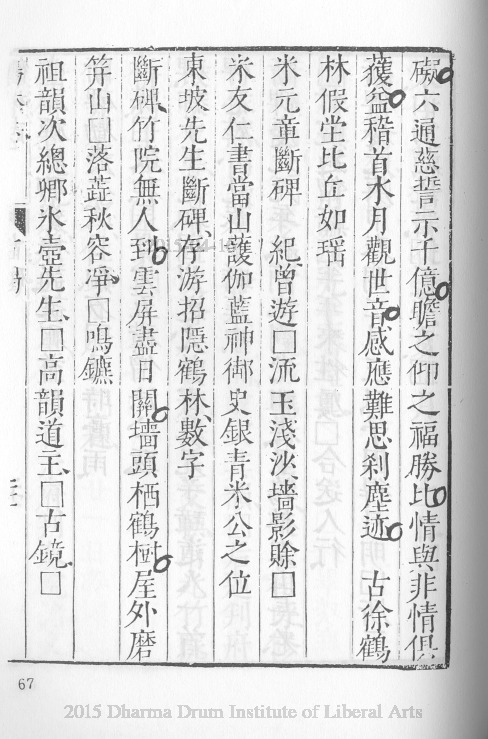 礙六通慈誓示千億瞻之仰之福勝比情與非情俱
獲益稽首水月觀世音感應難思刹塵迹　古徐鶴
林假堂比丘如瑶
米元章斷碑　紀曾遊□流玉淺沙墻影賒□
米友仁書當山護伽藍神御史銀青米公之位
東坡先生斷碑、存游招隱鶴林、數字
斷碑、竹院無人到雲屏盡日關墻頭栖鶴樹屋外磨
筓山□落蕋秋容凈、□鳴鑣
祖韻次總卿氷壺先生、□高韻道主、□古鏡、□
67
2015 Dharma Drum Institute of Liberal Arts